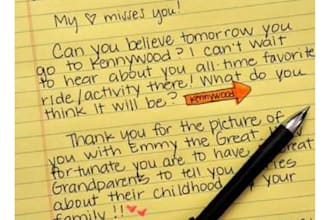 My ♡ misses you!
Can you believe tomorrow you
go to Kennywood? I can't wait
to hear about you all-time favorite
ride/activity there! What do you
think it will be? Kennywood
Thank you for the picture of
you with Emmy the Great.
fortunate you are to have
Grandparents to tell you
about their childhood your
family!! ♥♥